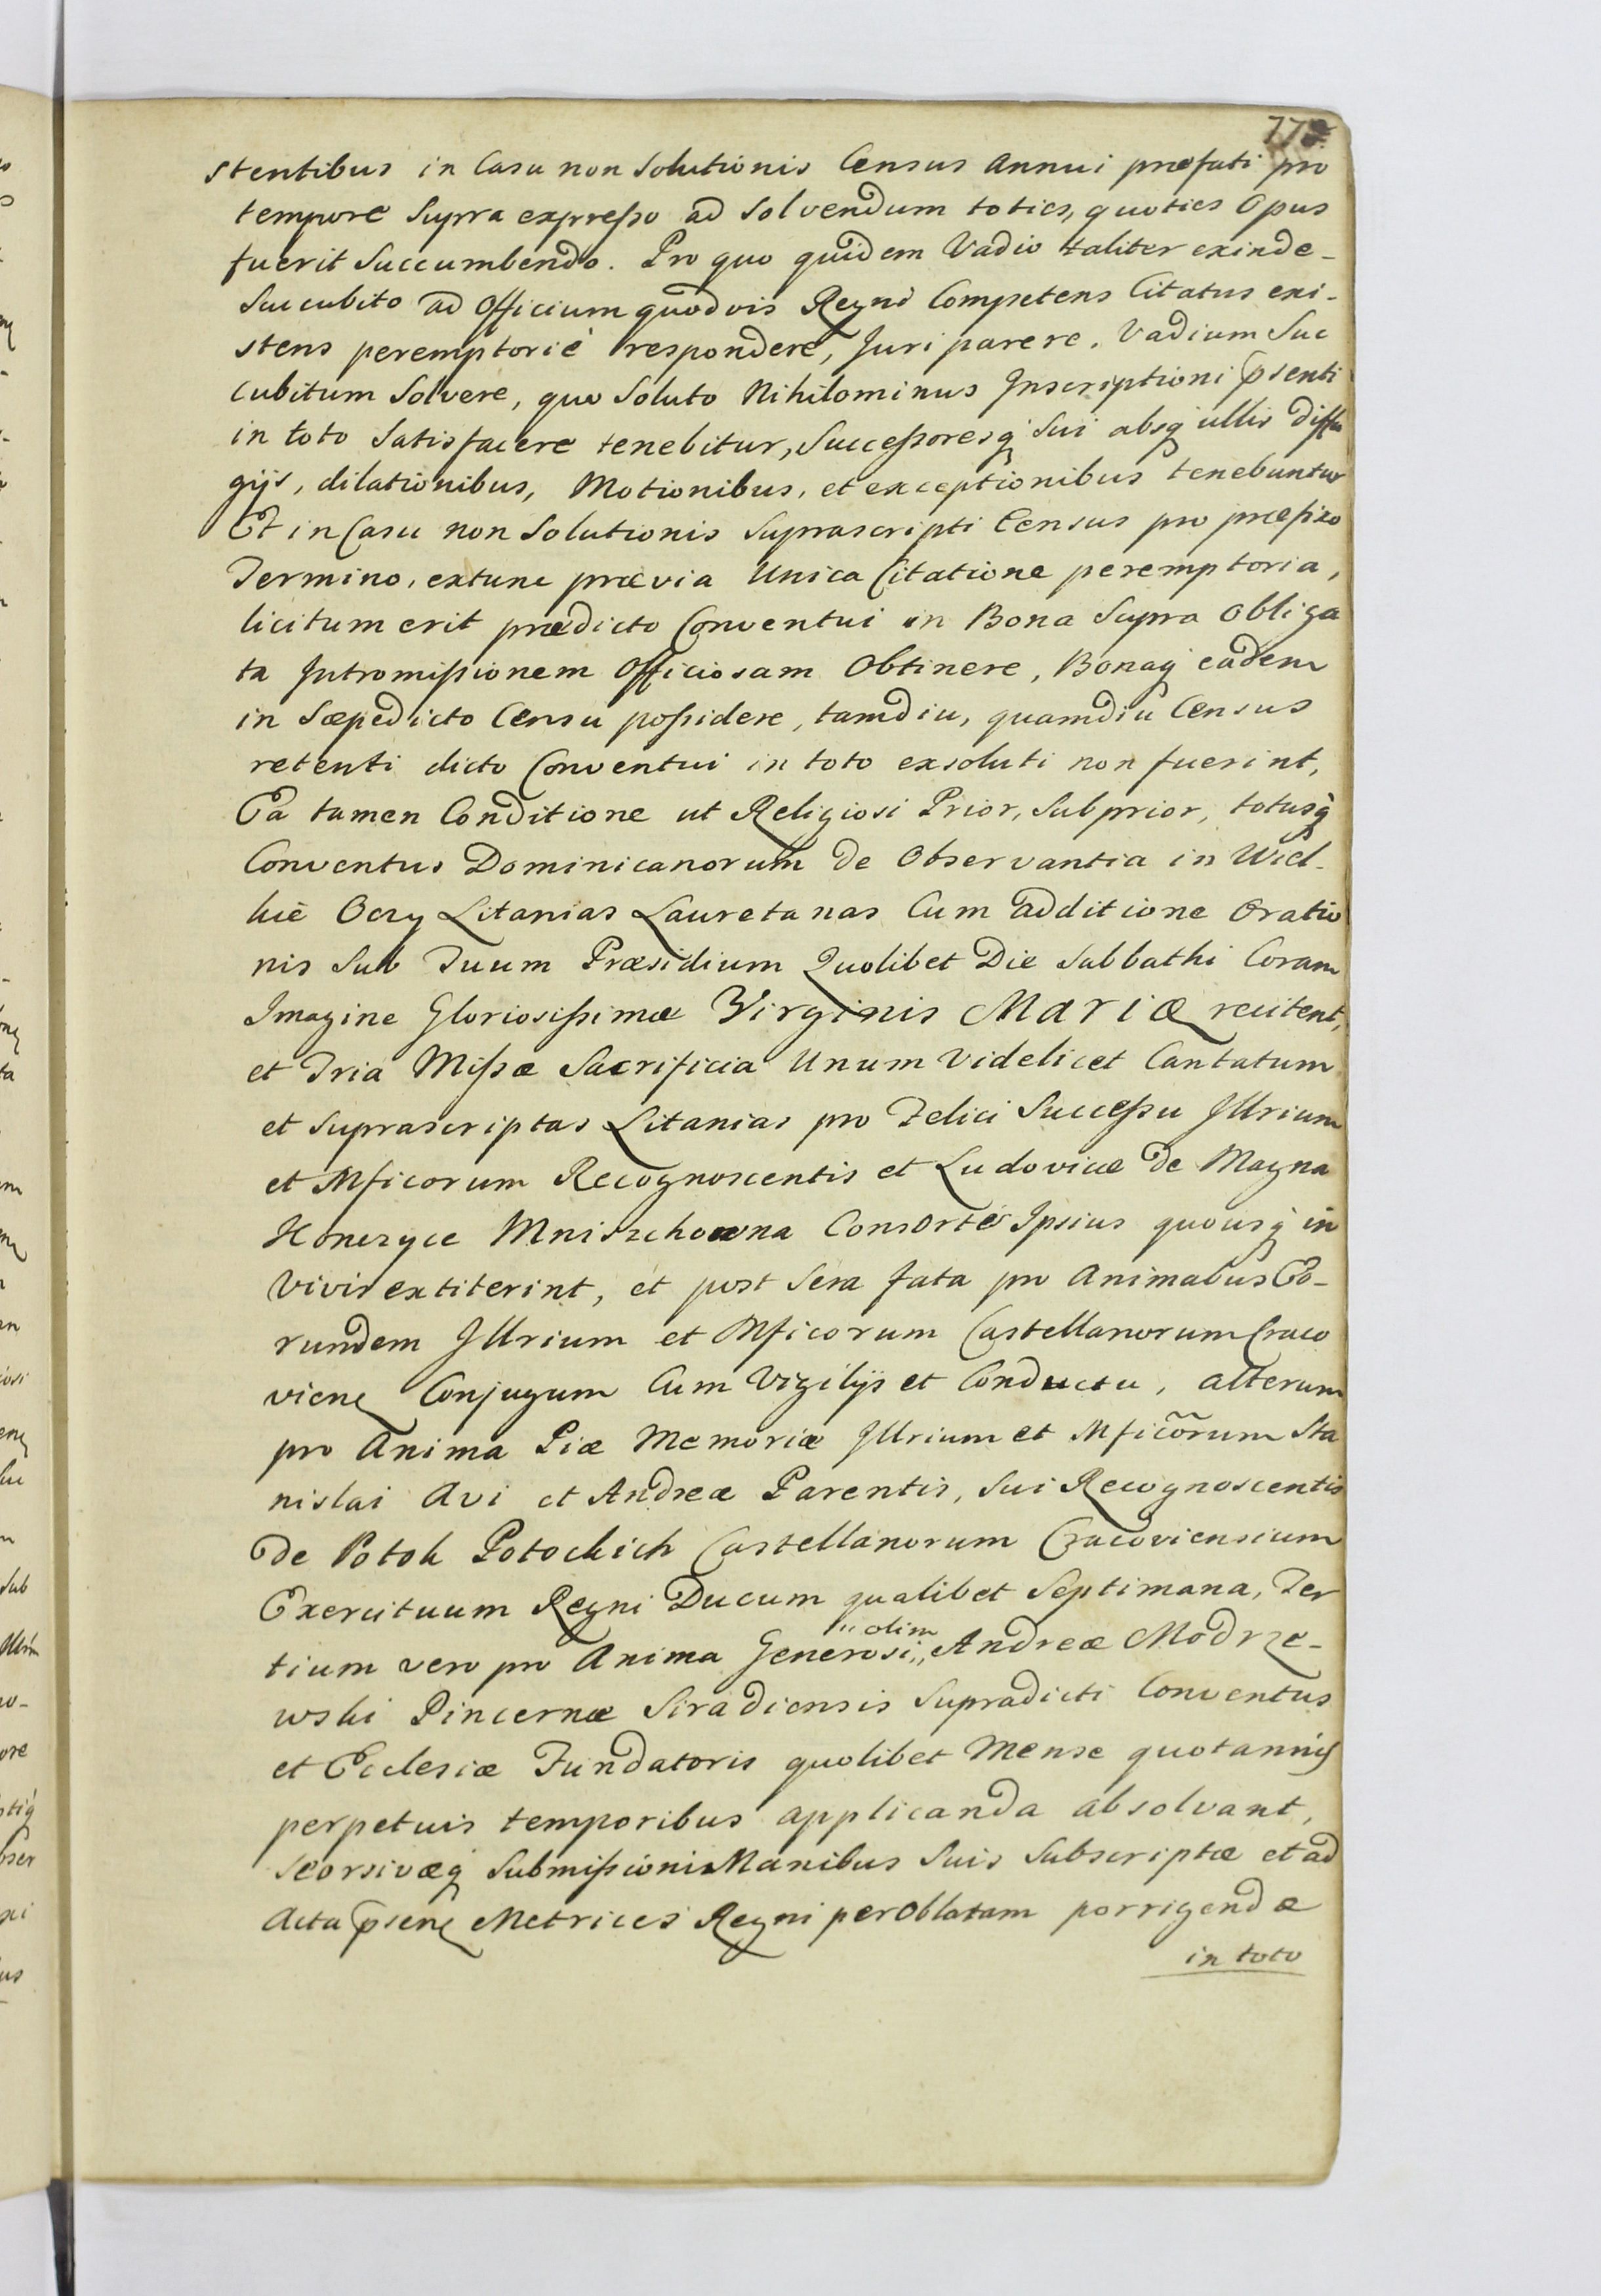 stentibus in Casu non Solutionis Census Annui præfati pro
tempore Supra expreßo ad Solvendum toties, quoties Opus
fuerit Succumbendo. Pro quo quidem Vadio taliter exinde-
Succubito ad Officium quodvis Regni Competens Citatus exi-
stens peremptoriè respondere, Juri parere, Vadium Suc
cubitum Solvere, quo Soluto Nihilominus Inscriptioni pṣenti
in toto Satisfacere tenebitur, Succeßoresq̃ Sui absq̃ ullis diffu
gijs, dilationibus, Motionibus, et exceptionibus tenebuntur
Et in Casu non Solutionis Suprascripti Census pro præfixo
Termino, extunc prævia Unica Citatione peremptoria,
licitum erit prædicto Conventui in Bona Supra Obliga
ta Intromißionem Officiosam Obtinere, Bonaq̃ eadem
in Sæpedicto Censu poßidere, tamdiu, quamdiu Census
retenti dicto Conventui in toto exsoluti non fuerint,
Ea tamen Conditione ut Religiosi Prior, Subprior, totusq̃
Conventus Dominicanorum de Observantia in Wiel-
kie Oczy Litanias Lauretanas Cum additione Oratio
nis Sub Tuum Præsidium Quolibet Die Sabbathi Coram
Imagine Gloriosißimæ Virginis MARIÆ recitent,
et Tria Mißæ Sacrificia Unum Videlicet Cantatum
et Suprascriptas Litanias pro Felici Succeßu Illrium
et Mficorum Recognoscentis et Ludovicæ de Magna
Konczyce Mniszchowna Consorte Ipsius quousq̃ in
Vivis extiterint, et post Sera fata pro Animabus Eo-
rundem Illrium et Mficorum Castellanorum Craco
vieñ Conjugum Cum Vigilijs et Conductu, alterum
pro Anima Piæ Memoriæ Illrium et Mficõrum Sta
nislai Avi et Andreæ Parentis, Sui Recognoscentis
de Potok Potockich Castellanorum Cracoviensium
Exercituum Regni Ducum qualibet Septimana, Ter
tium vero pro Anima Generosi „olim„ Andreæ Modrze-
wski Pincernæ Siradiensis Supradicti Conventus
et Ecclesiæ Fundatoris quolibet Mense quotannis
perpetuis temporibus applicanda absolvant,
Seorsivæq̃ Submißionis Manibus Suis Subscriptæ et ad
Acta pṣeñ Metrices Regni per Oblatam porrigendæ
in toto